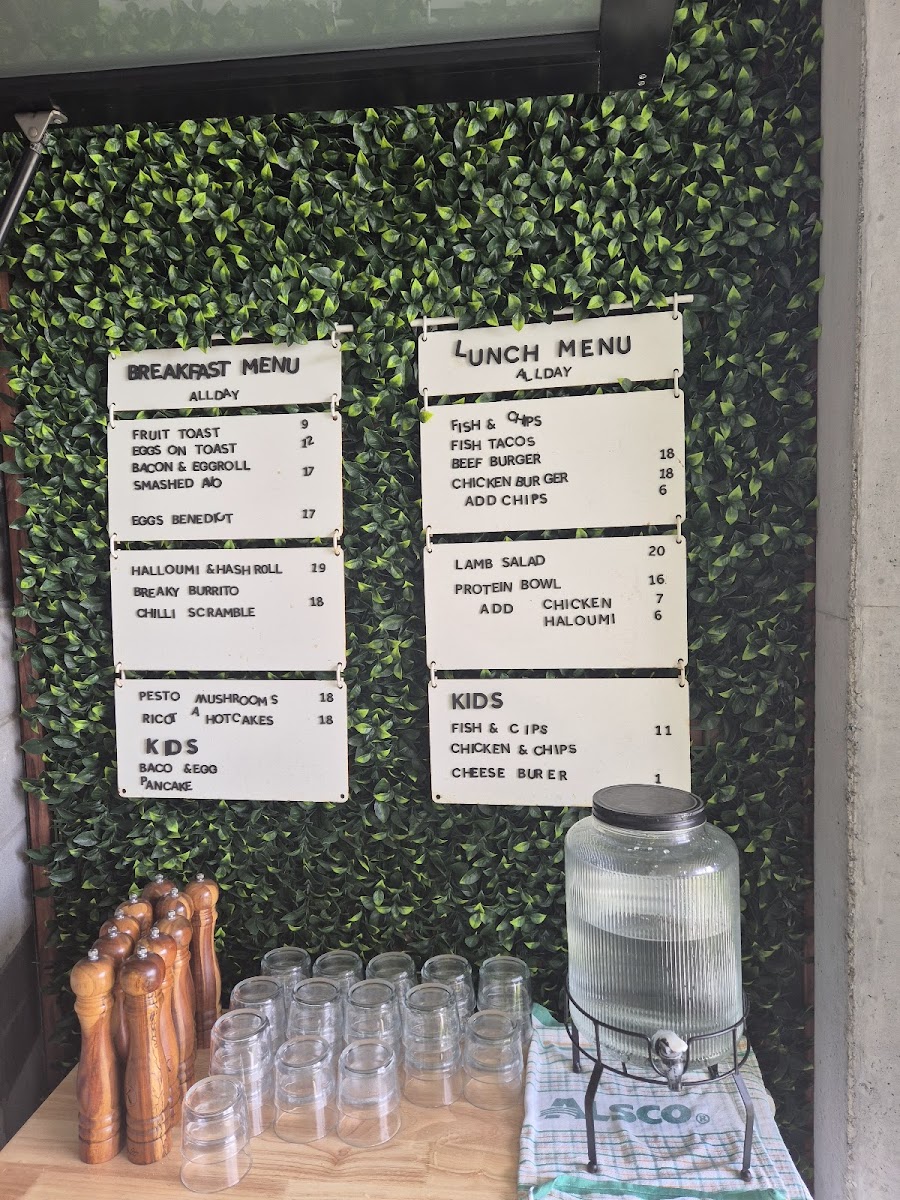 BREAKFAST MENU
ALLDAY
FRUIT TOAST 9
EGGS ON TOAST 12
BACON & EGGROLL 17
SMASHED AVO
EGGS BENEDICT 17
HALLOUMI & HASH ROLL 19
BREAKY BURRITO
CHILLI SCRAMBLE 18
PESTO MUSHROOMS 18
RICOT A HOTCAKES 18
K DS
BACO & EGG
PANCAKE
LUNCH MENU
ALLDAY
FISH & CHIPS
FISH TACOS
BEEF BURGER 18
CHICKEN BURGER 18
ADD CHIPS 6
LAMB SALAD 20
PROTEIN BOWL 16
ADD CHICKEN 7
HALOUMI 6
KIDS
FISH & C IPS 11
CHICKEN & CHIPS
CHEESE BUR ER 1
ALSCO®